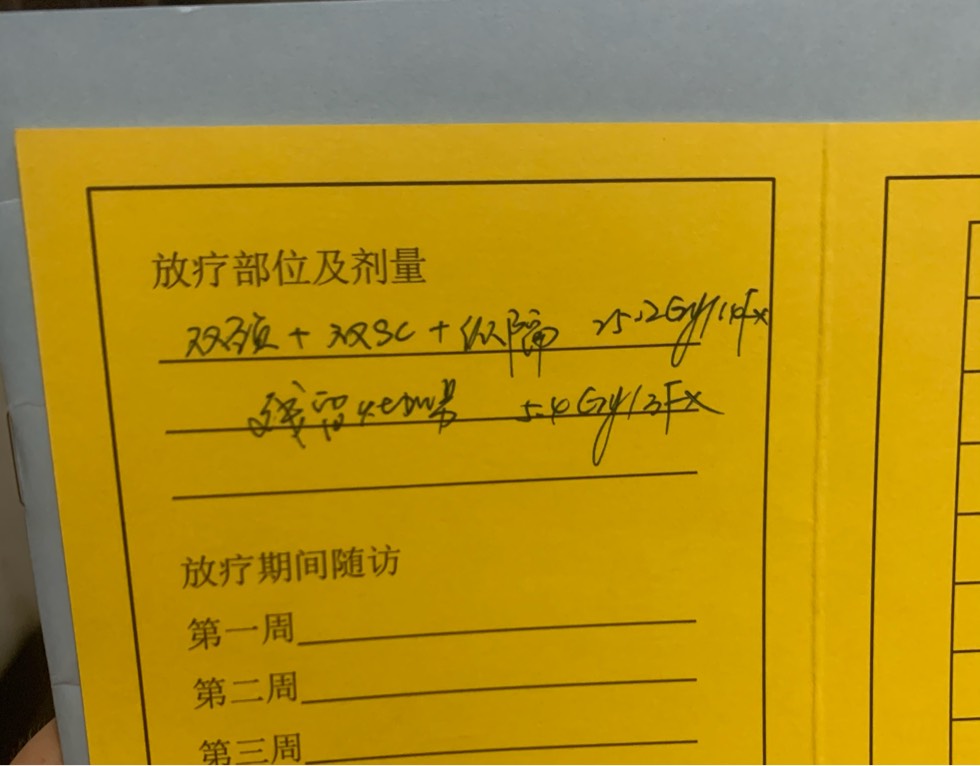 放疗部位及剂量
双颈 + 双SC + 纵隔 25.2Gy/14Fx
残留 5.4Gy/3Fx
放疗期间随访
第一周
第二周
第三周